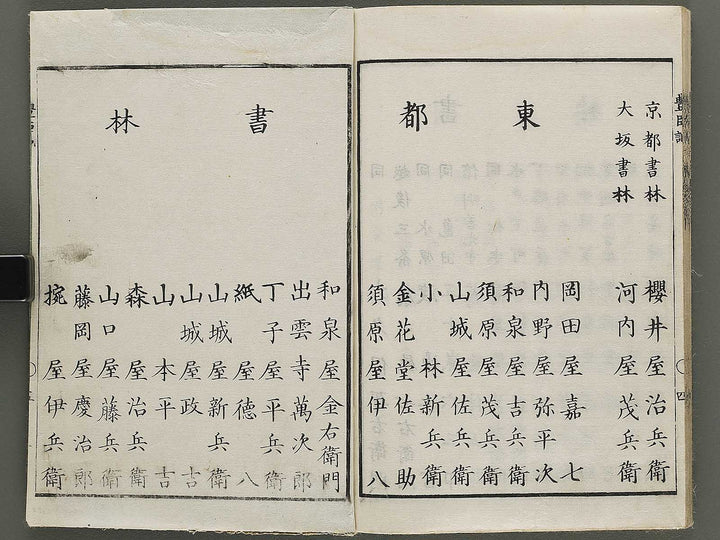 京都書林 櫻井屋治兵衛
大坂書林 河内屋茂兵衛
東都
岡田屋嘉七
内野屋弥平次
和泉屋吉兵衛
須原屋茂兵衛
山城屋佐兵衛
小林新兵衛
金花堂佐助
須原屋伊八
書林
和泉屋金右衛門
出雲寺萬次郎
丁子屋平兵衛
紙屋德八
山城屋新兵衛
山城屋政吉
山本平吉
森屋治兵衛
山口屋藤兵衛
藤岡屋慶治郎
屋伊兵衛
四